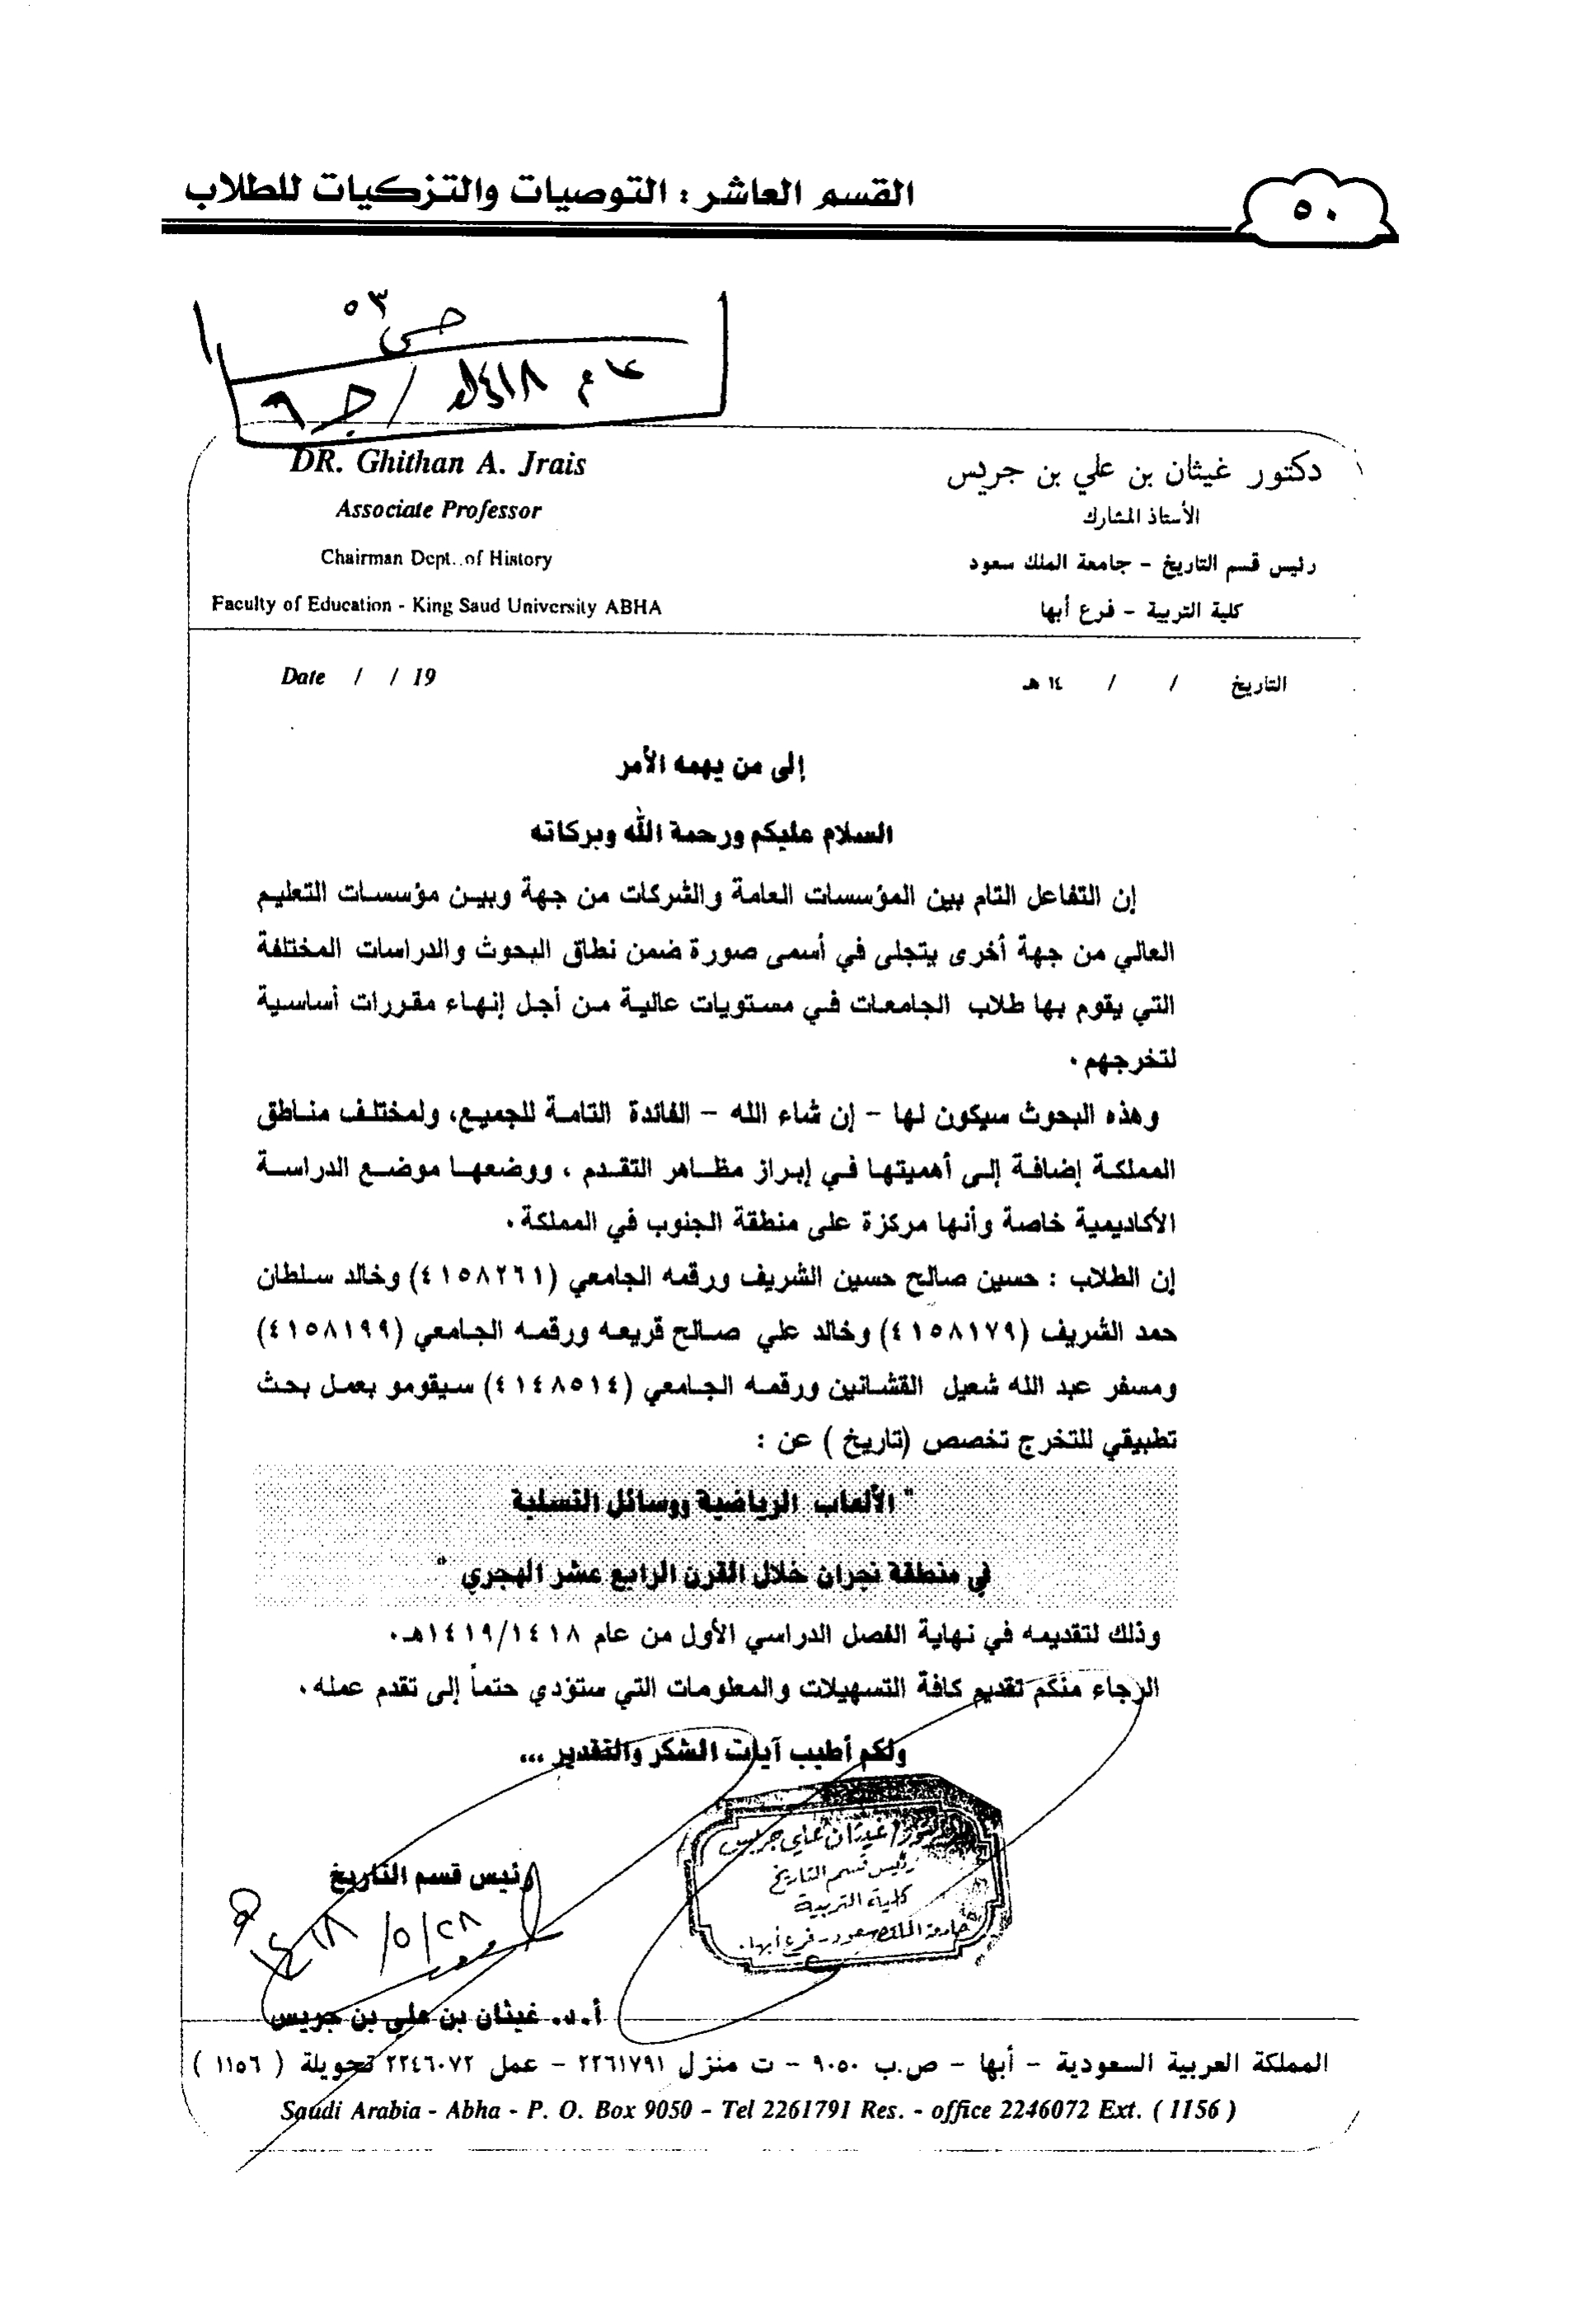 القسم العاشر : التوصيات والتزكيات للطلاب
٥٠
ص ٥٣
عام ١٤١٨هـ / ج ٩
DR. Ghithan A. Jrais
Associate Professor
Chairman Dept. of History
Faculty of Education - King Saud University ABHA
دكتور غيثان بن علي بن جريس
الأستاذ المشارك
رئيس قسم التاريخ - جامعة الملك سعود
كلية التربية - فرع أبها
Date / / 19
التاريخ / / ١٤ هـ
إلى من يهمه الأمر
السلام عليكم ورحمة الله وبركاته
إن التفاعل التام بين المؤسسات العامة والشركات من جهة وبين مؤسسات التعليم
العالي من جهة أخرى يتجلى في أسمى صورة ضمن نطاق البحوث والدراسات المختلفة
التي يقوم بها طلاب الجامعات في مستويات عالية من أجل إنهاء مقررات أساسية
لتخرجهم .
وهذه البحوث سيكون لها - إن شاء الله - الفائدة التامة للجميع، ولمختلف مناطق
المملكة إضافة إلى أهميتها في إبراز مظاهر التقدم ، ووضعها موضع الدراسة
الأكاديمية خاصة وأنها مركزة على منطقة الجنوب في المملكة .
إن الطلاب : حسين صالح حسين الشريف ورقمه الجامعي (٤١٥٨٢٦١) وخالد سلطان
حمد الشريف (٤١٥٨١٧٩) وخالد علي صالح قريعه ورقمه الجامعي (٤١٥٨١٩٩)
ومسفر عبد الله شعيل القشانين ورقمه الجامعي (٤١٤٨٥١٤) سيقومو بعمل بحث
تطبيقي للتخرج تخصص (تاريخ ) عن :
" الألعاب الرياضية ووسائل التسلية
في منطقة نجران خلال القرن الرابع عشر الهجري "
وذلك لتقديمه في نهاية الفصل الدراسي الأول من عام ١٤١٩/١٤١٨هـ .
الرجاء منكم تقديم كافة التسهيلات والمعلومات التي ستؤدي حتماً إلى تقدم عمله .
ولكم أطيب آيات الشكر والتقدير ...
غيثان علي جريس
رئيس قسم التاريخ
كلية التربية
جامعة الملك سعود - فرع أبها .
رئيس قسم التاريخ
٢٨/٥/١٤١٨هـ
أ.د. غيثان بن علي بن جريس
المملكة العربية السعودية - أبها - ص.ب ٩٠٥٠ - ت منزل ٢٢٦١٧٩١ - عمل ٢٢٤٦٠٧٢ تحويلة ( ١١٥٦ )
Saudi Arabia - Abha - P. O. Box 9050 - Tel 2261791 Res. - office 2246072 Ext. ( 1156 )